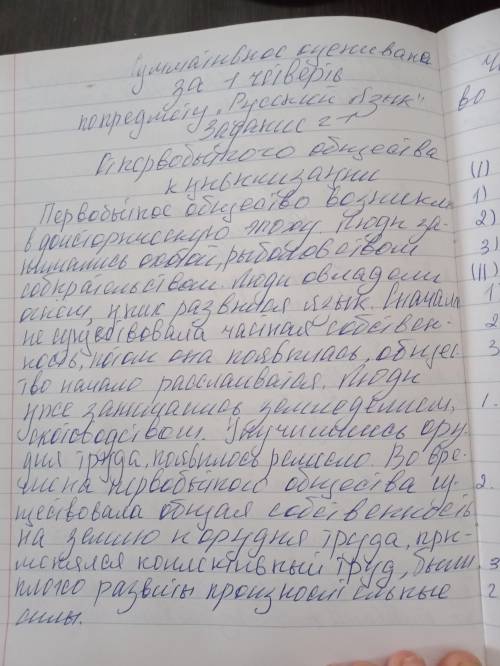 Суммативное оценивание
за 1 четверть
по предмету „Русский язык"
Задание
От первобытного общества
к цивилизации
Первобытное общество возникло
в доисторическую эпоху. Люди за-
нимались охотой, рыболовством
собирательством. Люди овладели
огнем, у них развился язык. Сначала
не существовала частная собствен-
ность, потом она появилась, общес-
тво начало расслаиватся. Люди
уже занимались земледелием,
скотоводством. Улучшились ору-
дия труда, появилось ремесло. Во вре-
мена первобытного общества су-
ществовала общая собственность
на землю и орудия труда, при-
менялся коллективный труд, были
плохо развиты производительные
силы.
во
(I)
1)
2)
3)
(II)
1
2
3
1.
2.
3
2